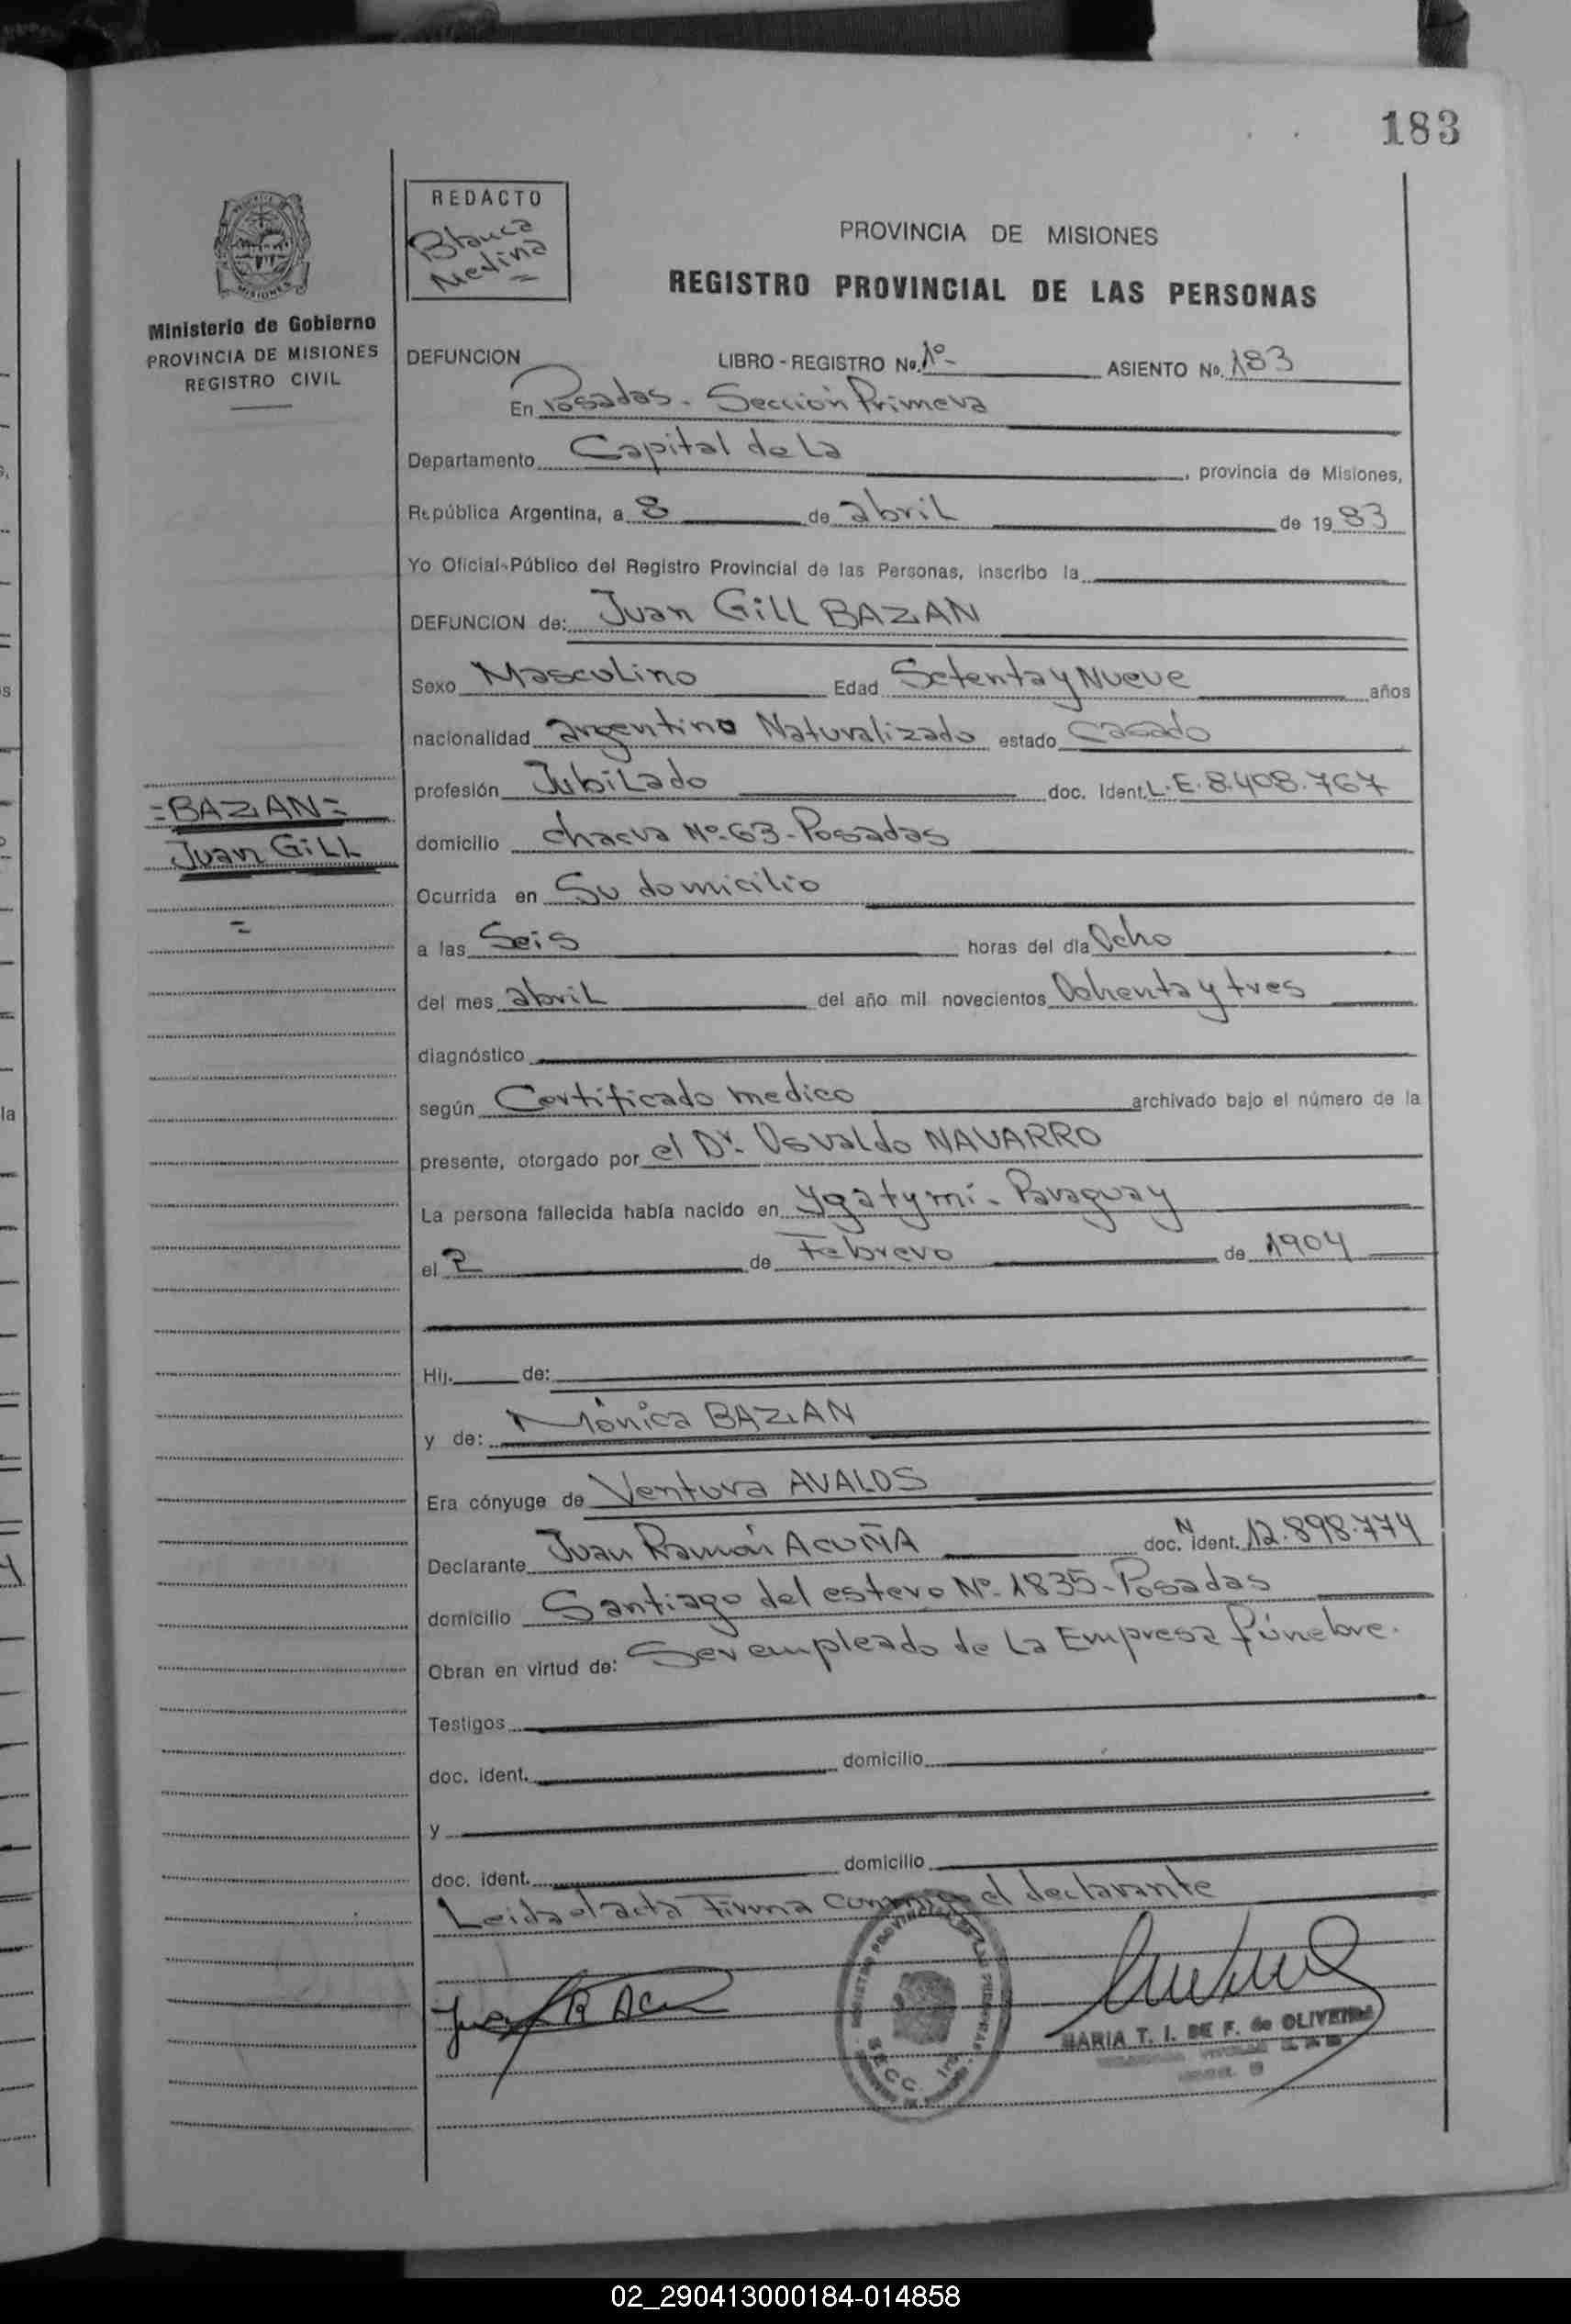 183
REDACTO
Blanca
Medina
MISIONES
Ministerio de Gobierno
PROVINCIA DE MISIONES
REGISTRO CIVIL
PROVINCIA DE MISIONES
REGISTRO PROVINCIAL DE LAS PERSONAS
DEFUNCION LIBRO - REGISTRO No. 1º ASIENTO No. 183
En Posadas. Sección Primera
Departamento Capital de la , provincia de Misiones,
República Argentina, a 8 de abril de 1983
Yo Oficial-Público del Registro Provincial de las Personas, inscribo la
DEFUNCION de: Juan Gill BAZAN
Sexo Masculino Edad Setenta y Nueve años
nacionalidad argentino Naturalizado estado Casado
profesión Jubilado doc. Ident. L.E. 8.408.767
=BAZAN=
Juan Gill
=
domicilio chacra Nº 63 - Posadas
Ocurrida en Su domicilio
a las Seis horas del día Ocho
del mes abril del año mil novecientos Ochenta y tres
diagnóstico
según Certificado medico archivado bajo el número de la
presente, otorgado por el Dr. Osvaldo NAVARRO
La persona fallecida había nacido en Ygatymí - Paraguay
el 2 de Febrero de 1904
Hij. de:
y de: Mónica BAZAN
Era cónyuge de Ventura AVALOS
Declarante Juan Ramón ACUÑA doc. N ident. 12.898.774
domicilio Santiago del estero Nº 1835 - Posadas
Obran en virtud de: Ser empleado de la Empresa fúnebre.
Testigos
doc. ident. domicilio
y
doc. ident. domicilio
Leida el acta Firma conmigo el declarante
MARIA T. I. DE F. de OLIVEIRA
SECC. 1ra
02_290413000184-014858